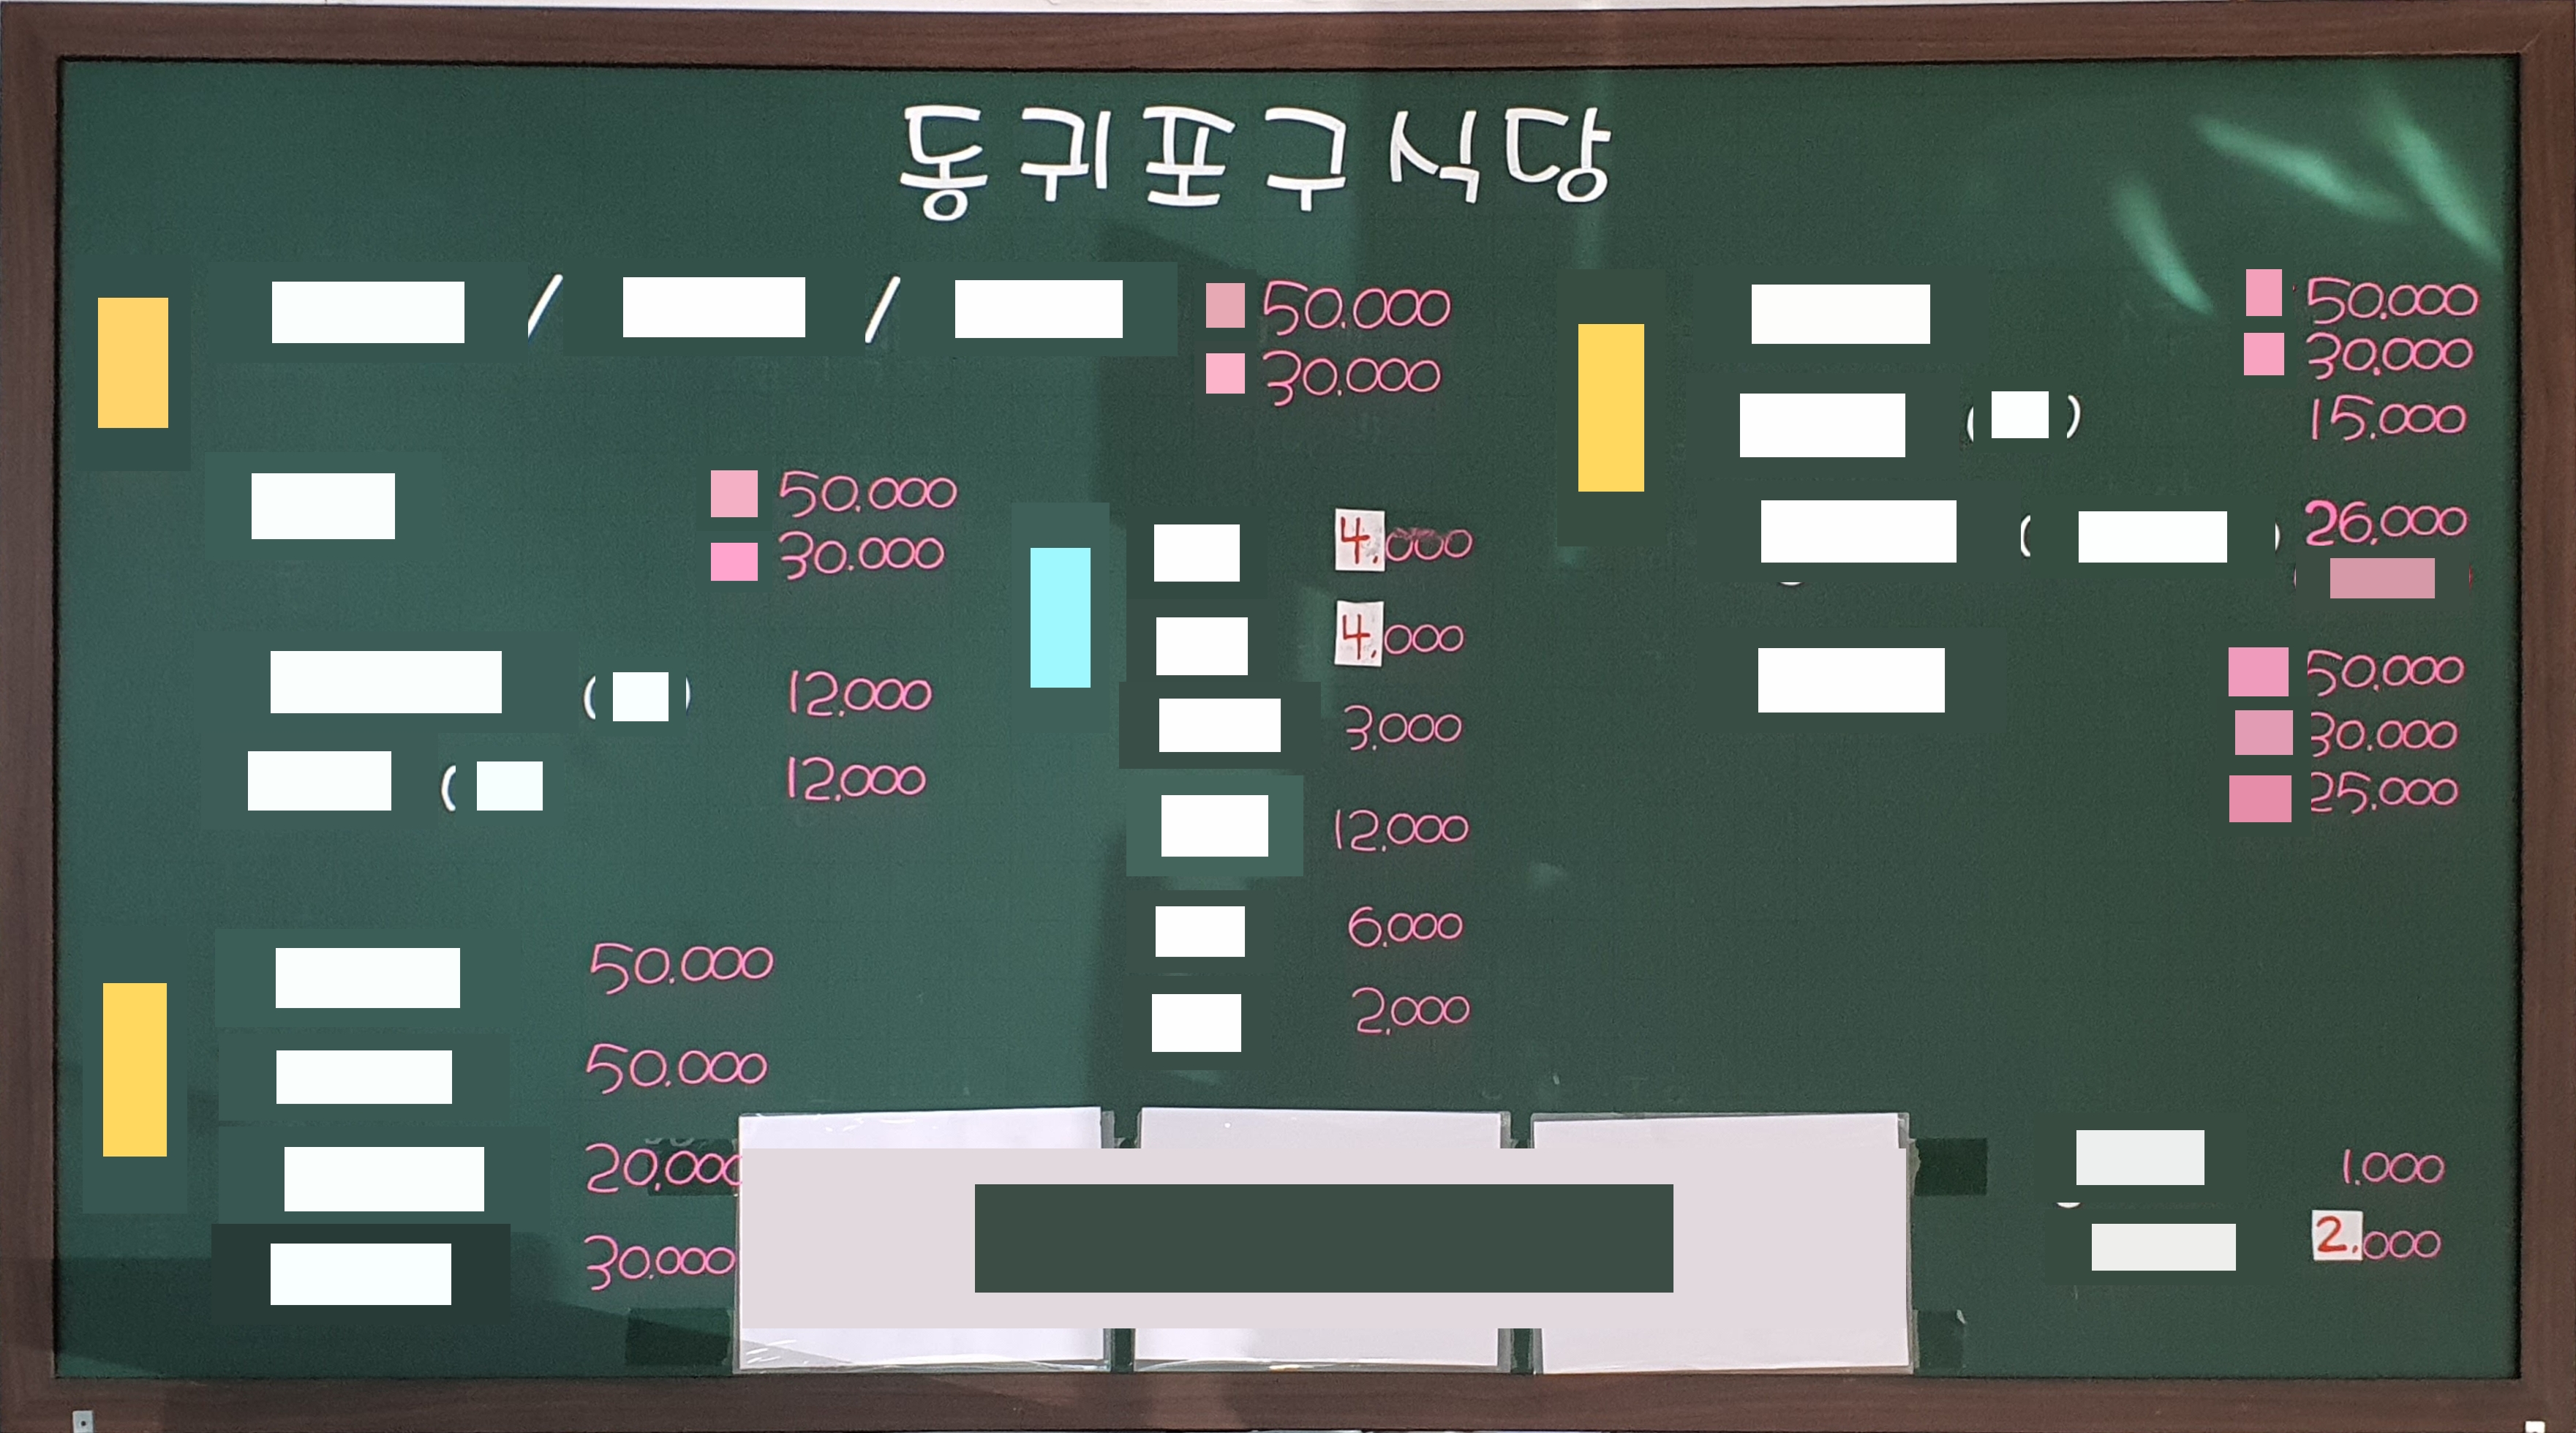 동귀포구식당
/ / 50.000
30.000
50.000
30.000
( ) 12.000
( 12.000
50.000
50.000
20.000
30.000
4.000
4.000
3.000
12.000
6.000
2.000
50.000
30.000
( ) 15.000
( ) 26.000
50.000
30.000
25.000
1.000
2.000